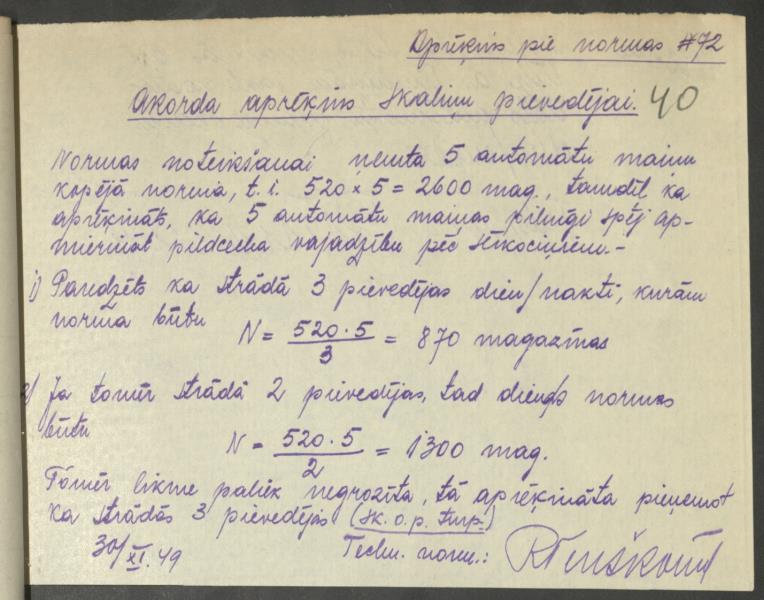 Aprēķins pie normas #72
Akorda aprēķins skaliņu pievedējai. 40
Normas noteikšanai ņemta 5 automātu maiņu
kopējā norma, t.i. 520 × 5 = 2600 mag., tamdēl ka
aprēķināts, ka 5 automātu maiņas pilnīgi spēj ap-
mierināt pildcecha vajadzību pēc sērkociņiem.-
1) Paredzēts ka strādā 3 pievedējas dien/naktī, kurām
norma būtu N = 520·5 / 3 = 870 magazīnas
2) Ja tomēr strādā 2 pievedējas, tad dienas normas
būtu N = 520·5 / 2 = 1300 mag.
Tomēr likme paliek negrozīta, tā aprēķināta pieņemot
ka strādās 3 pievedējas (sk. o.p. turp.)
30/XI.49 Techn. norm.: